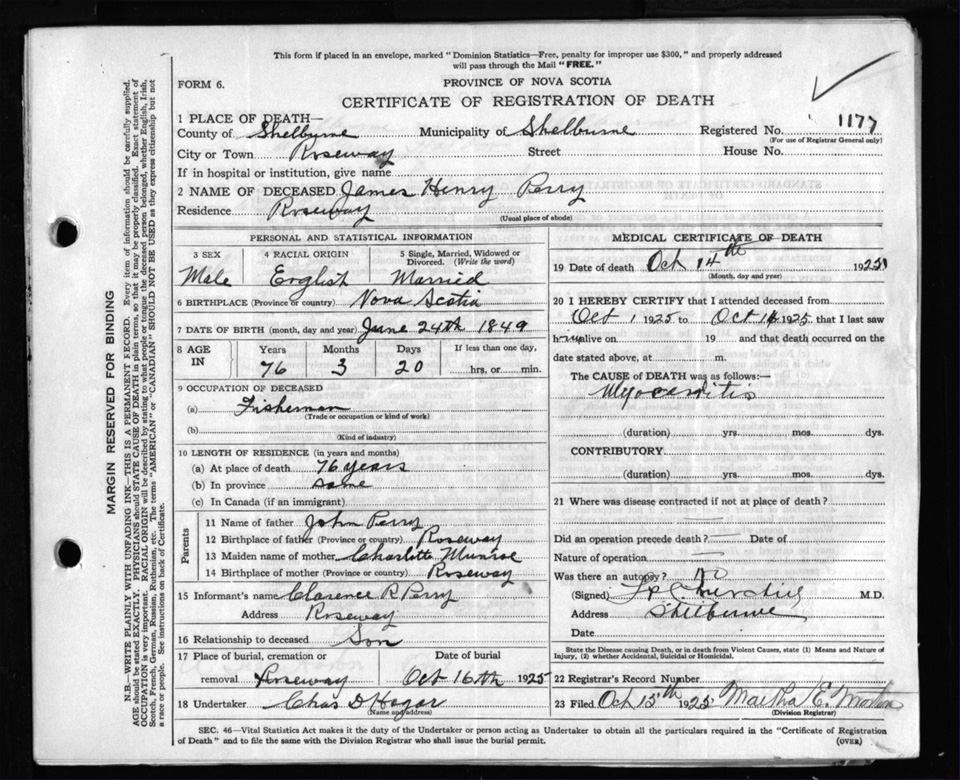 This form if placed in an envelope, marked "Dominion Statistics—Free, penalty for improper use $300," and properly addressed
will pass through the Mail "FREE."
FORM 6.
PROVINCE OF NOVA SCOTIA
CERTIFICATE OF REGISTRATION OF DEATH
1 PLACE OF DEATH—
County of Shelburne Municipality of Shelburne Registered No. 1177
(For use of Registrar General only)
City or Town Roseway Street House No.
If in hospital or institution, give name
2 NAME OF DECEASED James Henry Perry
Residence Roseway
(Usual place of abode)
PERSONAL AND STATISTICAL INFORMATION
3 SEX 4 RACIAL ORIGIN 5 Single, Married, Widowed or Divorced. (Write the word)
Male English Married
6 BIRTHPLACE (Province or country) Nova Scotia
7 DATE OF BIRTH (month, day and year) June 24th 1849
8 AGE IN Years Months Days If less than one day,
76 3 20 hrs. or min.
9 OCCUPATION OF DECEASED
(a) Fisherman
(Trade or occupation or kind of work)
(b)
(Kind of industry)
10 LENGTH OF RESIDENCE (in years and months)
(a) At place of death 76 years
(b) In province same
(c) In Canada (if an immigrant)
Parents
11 Name of father John Perry
12 Birthplace of father (Province or country) Roseway
13 Maiden name of mother Charlotte Munroe
14 Birthplace of mother (Province or country) Roseway
15 Informant's name Clarence R Perry
Address Roseway
16 Relationship to deceased Son
17 Place of burial, cremation or Date of burial
removal Roseway Oct 16th 1925
18 Undertaker Chas D Hagar
(Name and address)
MEDICAL CERTIFICATE OF DEATH
19 Date of death Oct 14th 1925
(Month, day and year)
20 I HEREBY CERTIFY that I attended deceased from
Oct 1 1925 to Oct 14 1925 that I last saw
him alive on 19 and that death occurred on the
date stated above, at m.
The CAUSE of DEATH was as follows:—
Myocarditis
(duration) yrs. mos. dys.
CONTRIBUTORY.
(duration) yrs. mos. dys.
21 Where was disease contracted if not at place of death?
Did an operation precede death? — Date of
Nature of operation —
Was there an autopsy? no
(Signed) M.D.
Address Shelburne
Date
State the Disease causing Death, or in death from Violent Causes, state (1) Means and Nature of
Injury, (2) whether Accidental, Suicidal or Homicidal.
22 Registrar's Record Number
23 Filed Oct 15th 1925 Martha E.
(Division Registrar)
SEC. 46—Vital Statistics Act makes it the duty of the Undertaker or person acting as Undertaker to obtain all the particulars required in the "Certificate of Registration
of Death" and to file the same with the Division Registrar who shall issue the burial permit. (OVER)
MARGIN RESERVED FOR BINDING
N.B.—WRITE PLAINLY WITH UNFADING INK—THIS IS A PERMANENT RECORD. Every item of information should be carefully supplied.
AGE should be stated EXACTLY. PHYSICIANS should STATE CAUSE OF DEATH in plain terms, so that it may be properly classified. Exact statement of
OCCUPATION is very important. RACIAL ORIGIN will be described by stating to what people or tongue the deceased person belonged, whether English, Irish,
Scotch, French, German, Russian, Ruthenian, etc. The terms "AMERICAN" or "CANADIAN" SHOULD NOT BE USED as they express citizenship but not
a race or people. See instructions on back of Certificate.